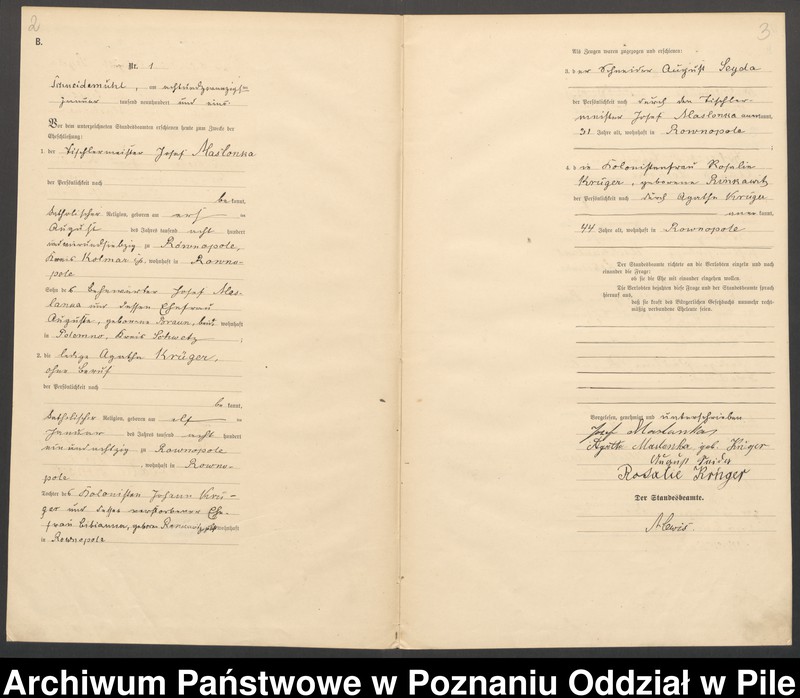 2
B.
Nr. 1
Schneidemühl, am achtundzwanzigsten
Januar tausend neunhundert und eins
Vor dem unterzeichneten Standesbeamten erschienen heute zum Zwecke der
Eheschließung:
1. der Tischlermeister Josef Maslonka
der Persönlichkeit nach
be kannt,
katholischer Religion, geboren am
August des Jahres tausend acht hundert
zu Rownopole,
Kreis Kolmar i/P., wohnhaft in Rowno-
pole
Sohn des Josef Mas-
lonka und dessen Ehefrau
Auguste, geborene Braun, wohnhaft
in Polemno, Kreis Schwetz ;
2. die ledige Agathe Krüger,
ohne Beruf
der Persönlichkeit nach
be kannt,
katholischer Religion, geboren am elf
Januar des Jahres tausend acht hundert
einundachtzig zu Rownopole
, wohnhaft in Rowno-
pole
Tochter des Kolonisten Johann Krü-
ger und dessen verstorbener Ehe-
frau Bibianna, geboren wohnhaft
in Rownopole
3
Als Zeugen waren zugezogen und erschienen:
3. der Schneider August Seyda
der Persönlichkeit nach durch den Tischler-
meister Josef Maslonka anerkannt,
31 Jahre alt, wohnhaft in Rownopole
;
4. die Kolonistenfrau Rosalie
Krüger, geborene
der Persönlichkeit nach durch Agathe Krüger
aner kannt,
44 Jahre alt, wohnhaft in Rownopole
Der Standesbeamte richtete an die Verlobten einzeln und nach
einander die Frage:
ob sie die Ehe mit einander eingehen wollen.
Die Verlobten bejahten diese Frage und der Standesbeamte sprach
hierauf aus,
daß sie kraft des Bürgerlichen Gesetzbuchs nunmehr recht-
mäßig verbundene Eheleute seien.
Vorgelesen, genehmigt und unterschrieben
Josef Maslonka
Agathe Maslonka geb. Krüger
August
Rosalie Krüger
Der Standesbeamte.
Archiwum Państwowe w Poznaniu Oddział w Pile